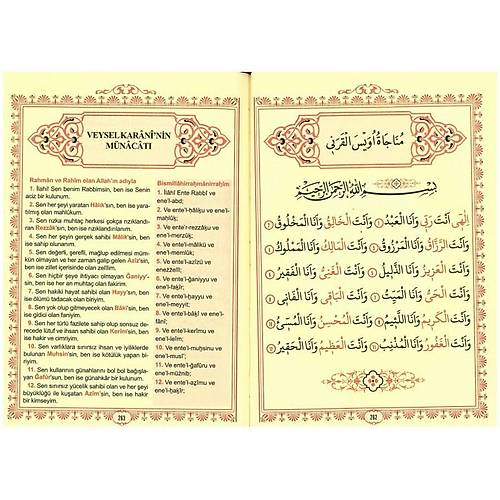 VEYSEL KARÂNÎ'NİN
MÜNÂCÂTI
Rahmân ve Rahîm olan Allah'ın adıyla
1. İlâhî! Sen benim Rabbimsin, ben ise Senin
âciz bir kulunum.
2. Sen her şeyi yaratan Hâlık'sın, ben ise yara-
tılmış olan mahlûkum.
3. Sen rızka muhtaç herkesi çokça rızıklandı-
ran Rezzâk'sın, ben ise rızıklandırılanım.
4. Sen her şeyin gerçek sahibi Mâlik'sin, ben ise
sahip olunanım.
5. Sen değerli, şerefli, mağlup edilmesi müm-
kün olmayan ve daima galip gelen Azîz'sin,
ben ise zillet içerisinde olan zelîlim.
6. Sen hiçbir şeye ihtiyacı olmayan Ganiyy'-
sin, ben ise her an muhtaç olan fakirim.
7. Sen hakiki hayat sahibi olan Hayy'sın, ben
ise ölümü tadacak olan biriyim.
8. Sen yok olup gitmeyecek olan Bâkî'sin, ben
ise gidici olan faniyim.
9. Sen her türlü fazilete sahip olup sonsuz de-
recede lütuf ve ikram sahibi olan Kerîm'sin, ben
ise hakir ve cimriyim.
10. Sen varlıklara sınırsız ihsan ve iyiliklerde
bulunan Muhsin'sin, ben ise kötülük yapan bi-
riyim.
11. Sen kullarının günahlarını bol bol bağışla-
yan Gafûr'sun, ben ise günahkâr bir kulunum.
12. Sen sınırsız yücelik sahibi olan ve her şeyi
büyüklüğü ile kuşatan Azîm'sin, ben ise hakir
bir kimseyim.
Bismillâhirraḥmânirraḥîm
1. İlâhî Ente Rabbî ve
ene'l-abd;
2. Ve ente'l-ḫâliḳu ve ene'l-
maḫlûḳ;
3. Ve ente'r-rezzâḳu ve
ene'l-merzûḳ;
4. Ve ente'l-mâliku ve
ene'l-memlûk;
5. Ve ente'l-azîzü ve
eneẕẕelîl;
6. Ve ente'l-ğaniyyu ve
ene'l-faḳîr;
7. Ve ente'l-ḥayyu ve
ene'l-meyyit;
8. Ve ente'l-bâḳî ve ene'l-
fânî;
9. Ve ente'l-kerîmu ve
ene'l-leîm;
10. Ve ente'l-muḥsinu ve
ene'l-musî';
11. Ve ente'l-ğafûru ve
ene'l-müẕnib;
12. Ve ente'l-aẓîmu ve
ene'l-ḥaḳîr;
263
مُنَاجَاةُ اُوَيْسِ الْقَرَنِي
بِسْمِ اللهِ الرَّحْمٰنِ الرَّحِيمِ
اِلٰهِي اَنْتَ رَبِّي وَاَنَا الْعَبْدُ ۝ وَاَنْتَ الْخَالِقُ وَاَنَا الْمَخْلُوقُ ۝
وَاَنْتَ الرَّزَّاقُ وَاَنَا الْمَرْزُوقُ ۝ وَاَنْتَ الْمَالِكُ وَاَنَا الْمَمْلُوكُ ۝
وَاَنْتَ الْعَزِيزُ وَاَنَا الذَّلِيلُ ۝ وَاَنْتَ الْغَنِيُّ وَاَنَا الْفَقِيرُ ۝
وَاَنْتَ الْحَيُّ وَاَنَا الْمَيِّتُ ۝ وَاَنْتَ الْبَاقِي وَاَنَا الْفَانِي ۝
وَاَنْتَ الْكَرِيمُ وَاَنَا اللَّئِيمُ ۝ وَاَنْتَ الْمُحْسِنُ وَاَنَا الْمُسِيءُ ۝
وَاَنْتَ الْغَفُورُ وَاَنَا الْمُذْنِبُ ۝ وَاَنْتَ الْعَظِيمُ وَاَنَا الْحَقِيرُ ۝
262